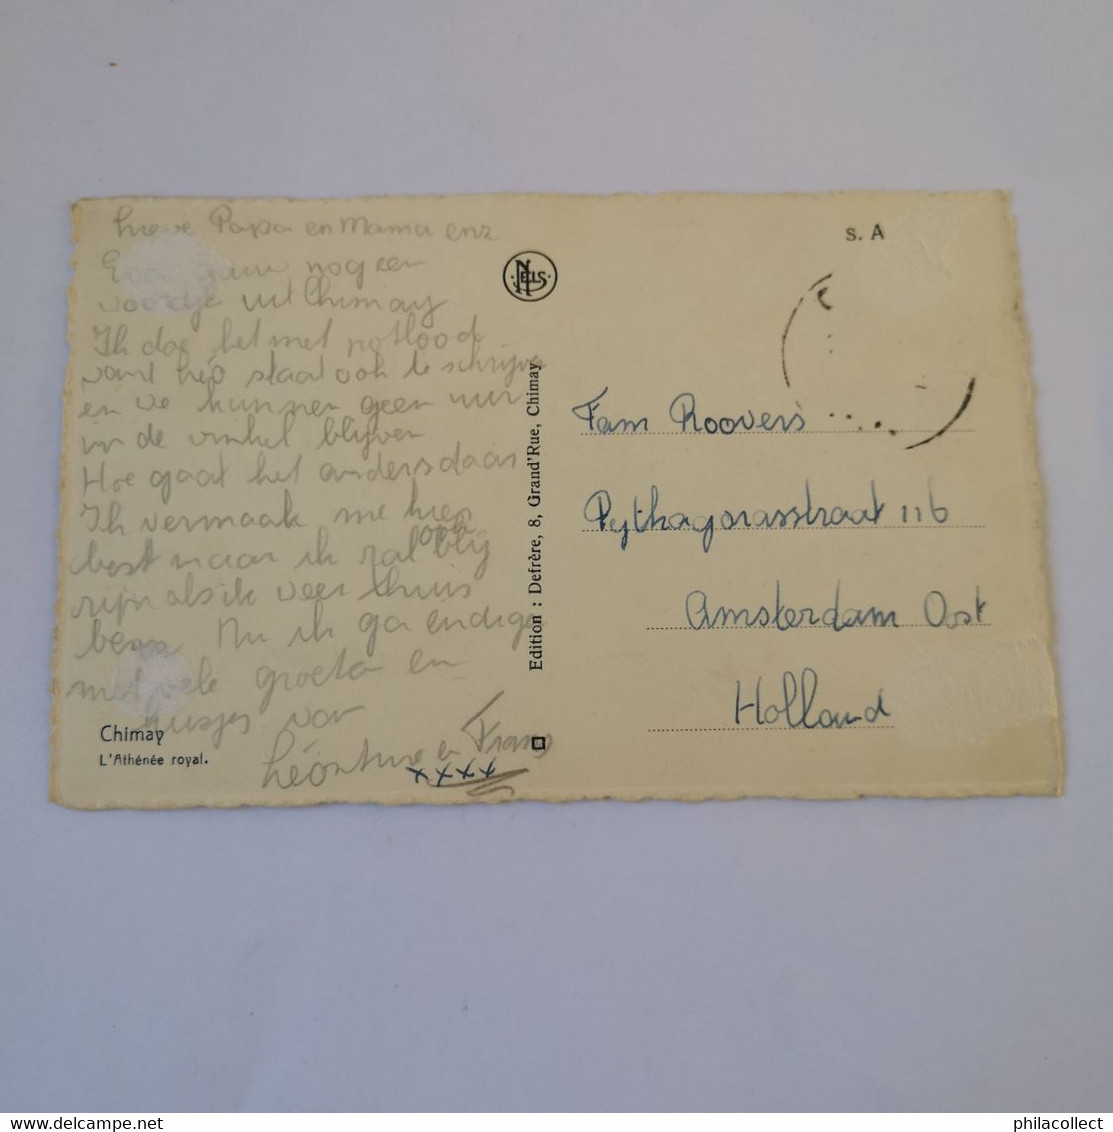 Lieve Papa en Mama enz
gauw nog een
woordje uit Chimay
Ik doe het met potlood
want Léo staat ook te schrijven
en we kunnen geen uur
in de winkel blijven
Hoe gaat het anders daar
Ik vermaak me hier
best maar ik zal ook blij
zijn als ik weer thuis
ben. Nu ik ga endige
met vele groeten en
kusjes van
Léontine en Frans
xxxx
Chimay
L'Athénée royal.
NELS
Edition : Defrère, 8, Grand'Rue, Chimay
S. A
Fam Roovers
Pythagorasstraat 116
Amsterdam Oost
Holland
www.delcampe.net
philacollect